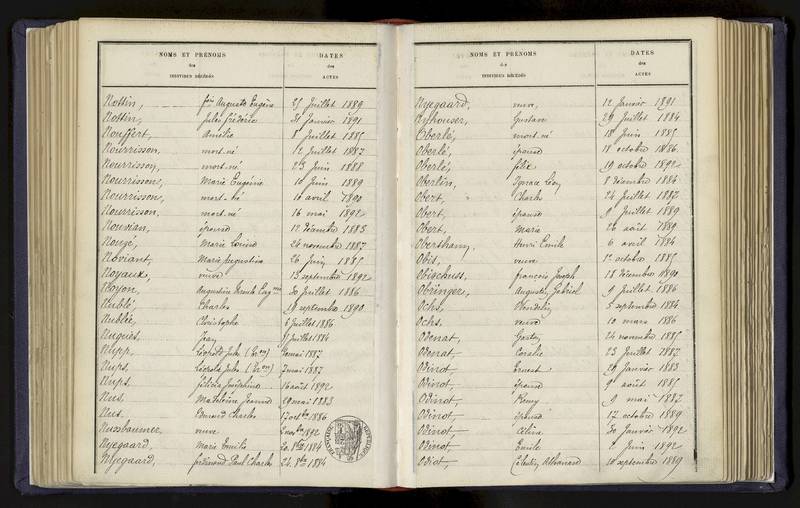 NOMS ET PRÉNOMS
des
INDIVIDUS DÉCÉDÉS
DATES
des
ACTES
Nottin, Auguste Eugène 25 Juillet 1889
Nottin, Jules Frédéric 31 Janvier 1891
Nouffert, Amélie 8 Juillet 1885
Nourrisson, mort-né 12 Juillet 1887
Nourrisson, mort-né 23 Juin 1888
Nourrisson, Marie Eugénie 10 Juin 1889
Nourrisson, mort-né 10 avril 1890
Nourrisson, mort-né 16 mai 1892
Nouvian, épouse 12 Décembre 1883
Nouzé, Marie Louise 24 novembre 1887
Noviant, Marie Augustine 26 Juin 1885
Noyaux, veuve 13 septembre 1892
Noyon, Augustin 30 Juillet 1886
Nublé, Charles 19 septembre 1890
Nublée, Christophe 6 Juillet 1886
Nugues, Juillet 1884
Nupp, Léopold Jules mai 1887
Nups, Léopold Jules 7 mai 1887
Nups, Félicie Joséphine 16 août 1892
Nus, Madeleine Jeanne 29 mai 1883
Nus, Edmond Charles 17 octbre 1886
Nussbaumer, veuve 1892
Nyegaard, Marie Emilie 20 8bre 1884
Nyegaard, Ferdinand Paul Charles 24 8bre 1884
NOMS ET PRÉNOMS
des
INDIVIDUS DÉCÉDÉS
DATES
des
ACTES
Nyegaard, veuve 12 Janvier 1891
Gustave 29 Juillet 1884
Oberlé, mort-né 18 Juin 1885
Oberlé, épouse 18 octobre 1886
Oberlé, Félix 19 octobre 1892
Oberlin, Ignace Léon 8 Décembre 1886
Obert, Charles 24 Juillet 1887
Obert, épouse 9 Juillet 1889
Obert, Marie 26 août 1889
Oberthann, Henri Emile 6 avril 1884
Obis, veuve octobre 1885
Obischuss, François Joseph 18 Décembre 1890
Obringer, Auguste Gabriel 9 Juillet 1886
Ochs, Wendelin 5 septembre 1884
Ochs, veuve 10 mars 1886
Odenat, Gaston 24 novembre 1885
Odenat, Coralie 23 Juillet 1887
Odinot, Ernest 29 Janvier 1883
Odinot, épouse 9 août 1885
Odinot, Remy 9 mai 1887
Odinot, épouse 17 octobre 1889
Odinot, Célina 30 Janvier 1892
Odinot, Emile Juin 1892
Odiot, Célestin Athanase 10 septembre 1889